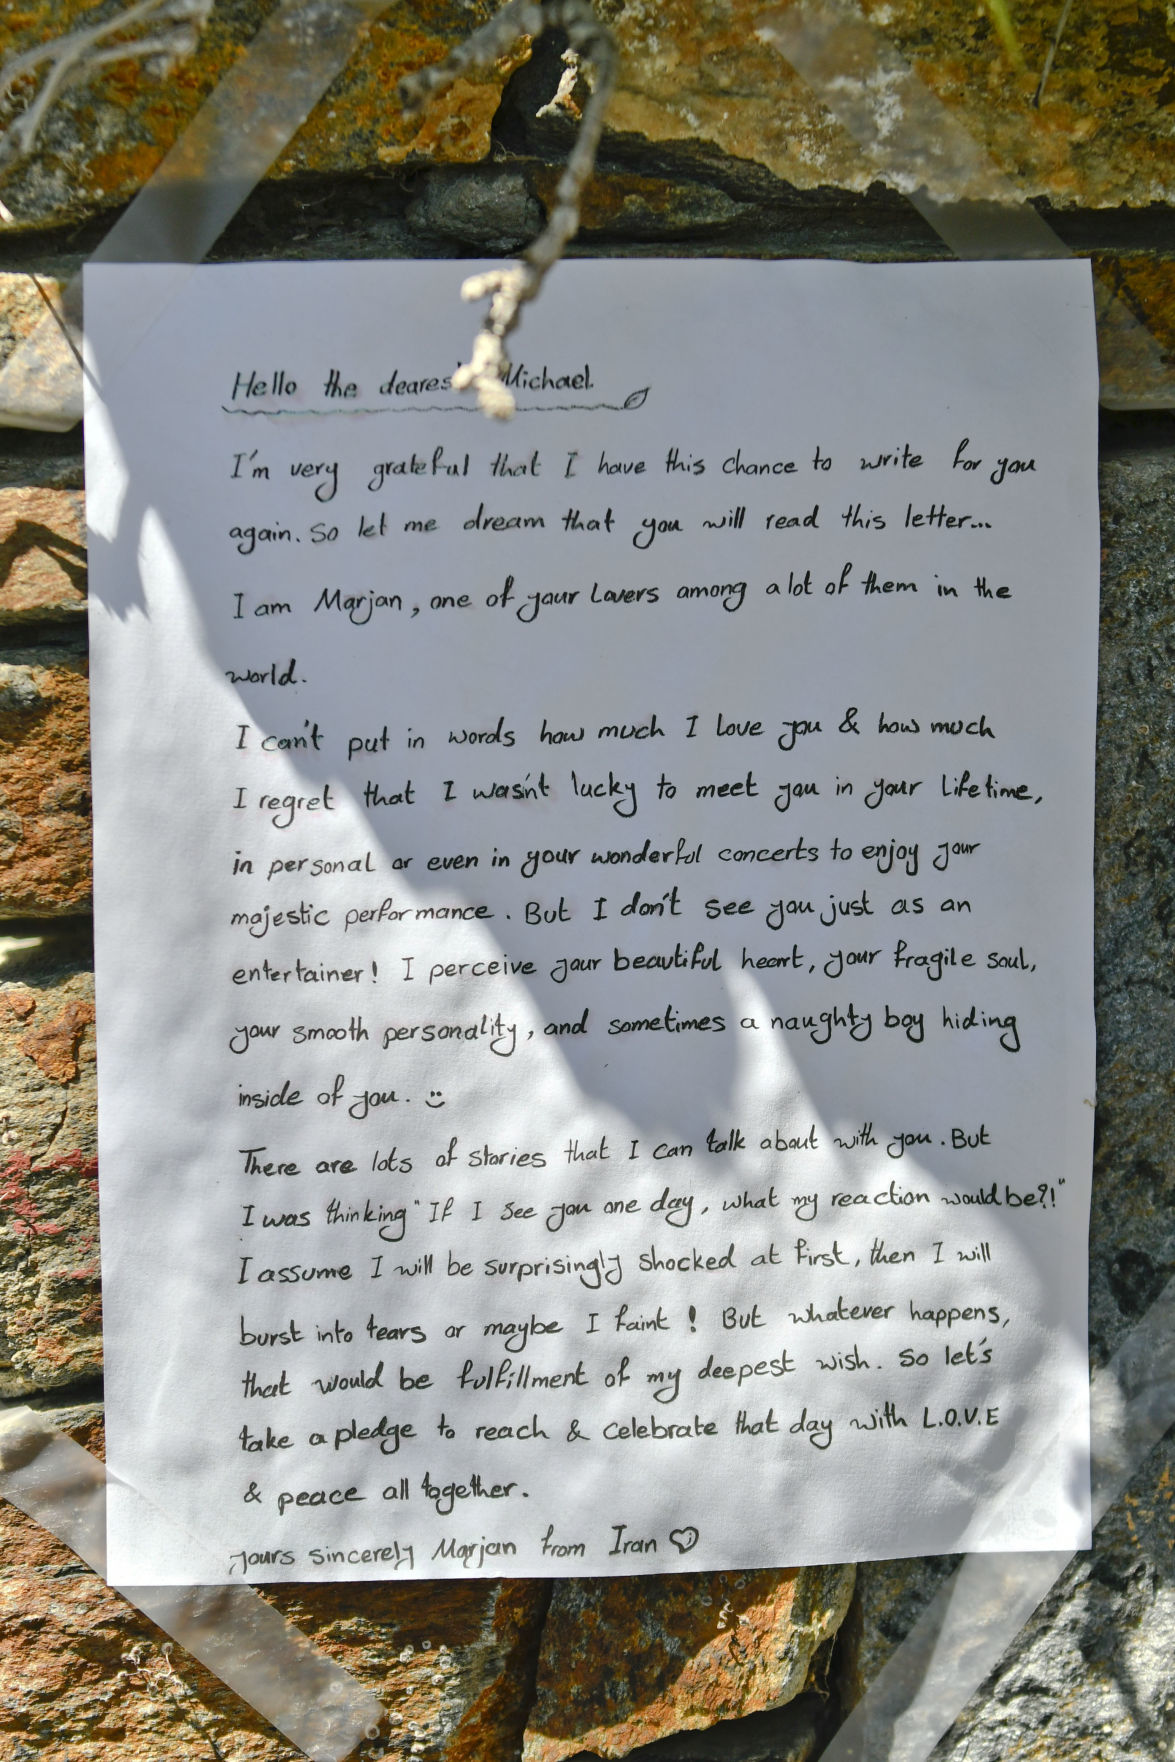 Hello the dearest Michael
I'm very grateful that I have this chance to write for you
again. So let me dream that you will read this letter...
I am Marjan, one of your Lovers among a lot of them in the
world.
I can't put in words how much I love you & how much
I regret that I wasn't lucky to meet you in your lifetime,
in personal or even in your wonderful concerts to enjoy your
majestic performance. But I don't see you just as an
entertainer! I perceive your beautiful heart, your fragile soul,
your smooth personality, and sometimes a naughty boy hiding
inside of you. :)
There are lots of stories that I can talk about with you. But
I was thinking "If I see you one day, what my reaction would be?!"
I assume I will be surprisingly shocked at first, then I will
burst into tears or maybe I faint! But whatever happens,
that would be fulfillment of my deepest wish. So let's
take a pledge to reach & celebrate that day with L.O.V.E
& peace all together.
yours sincerely Marjan from Iran ♡